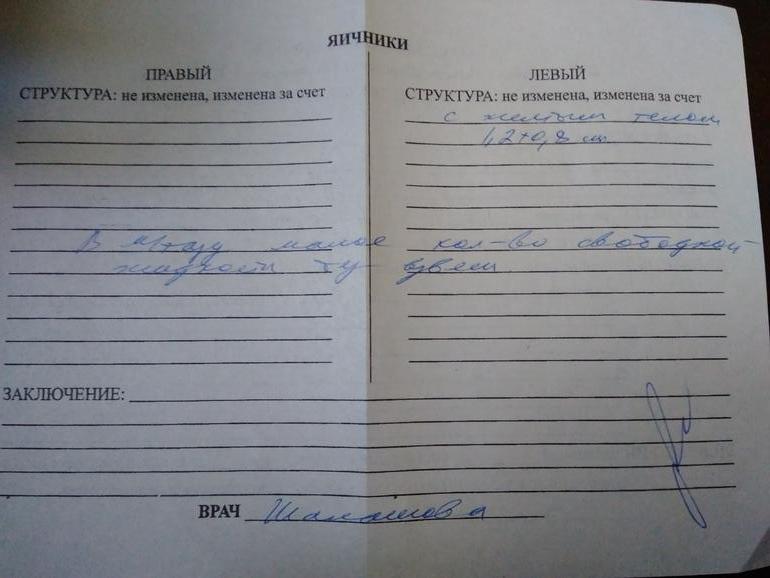 ЯИЧНИКИ
ПРАВЫЙ
СТРУКТУРА: не изменена, изменена за счет
ЛЕВЫЙ
СТРУКТУРА: не изменена, изменена за счет
с желтым телом
1,2×0,8 см
В м/тазу малое кол-во свободной
жидкости
ЗАКЛЮЧЕНИЕ:
ВРАЧ